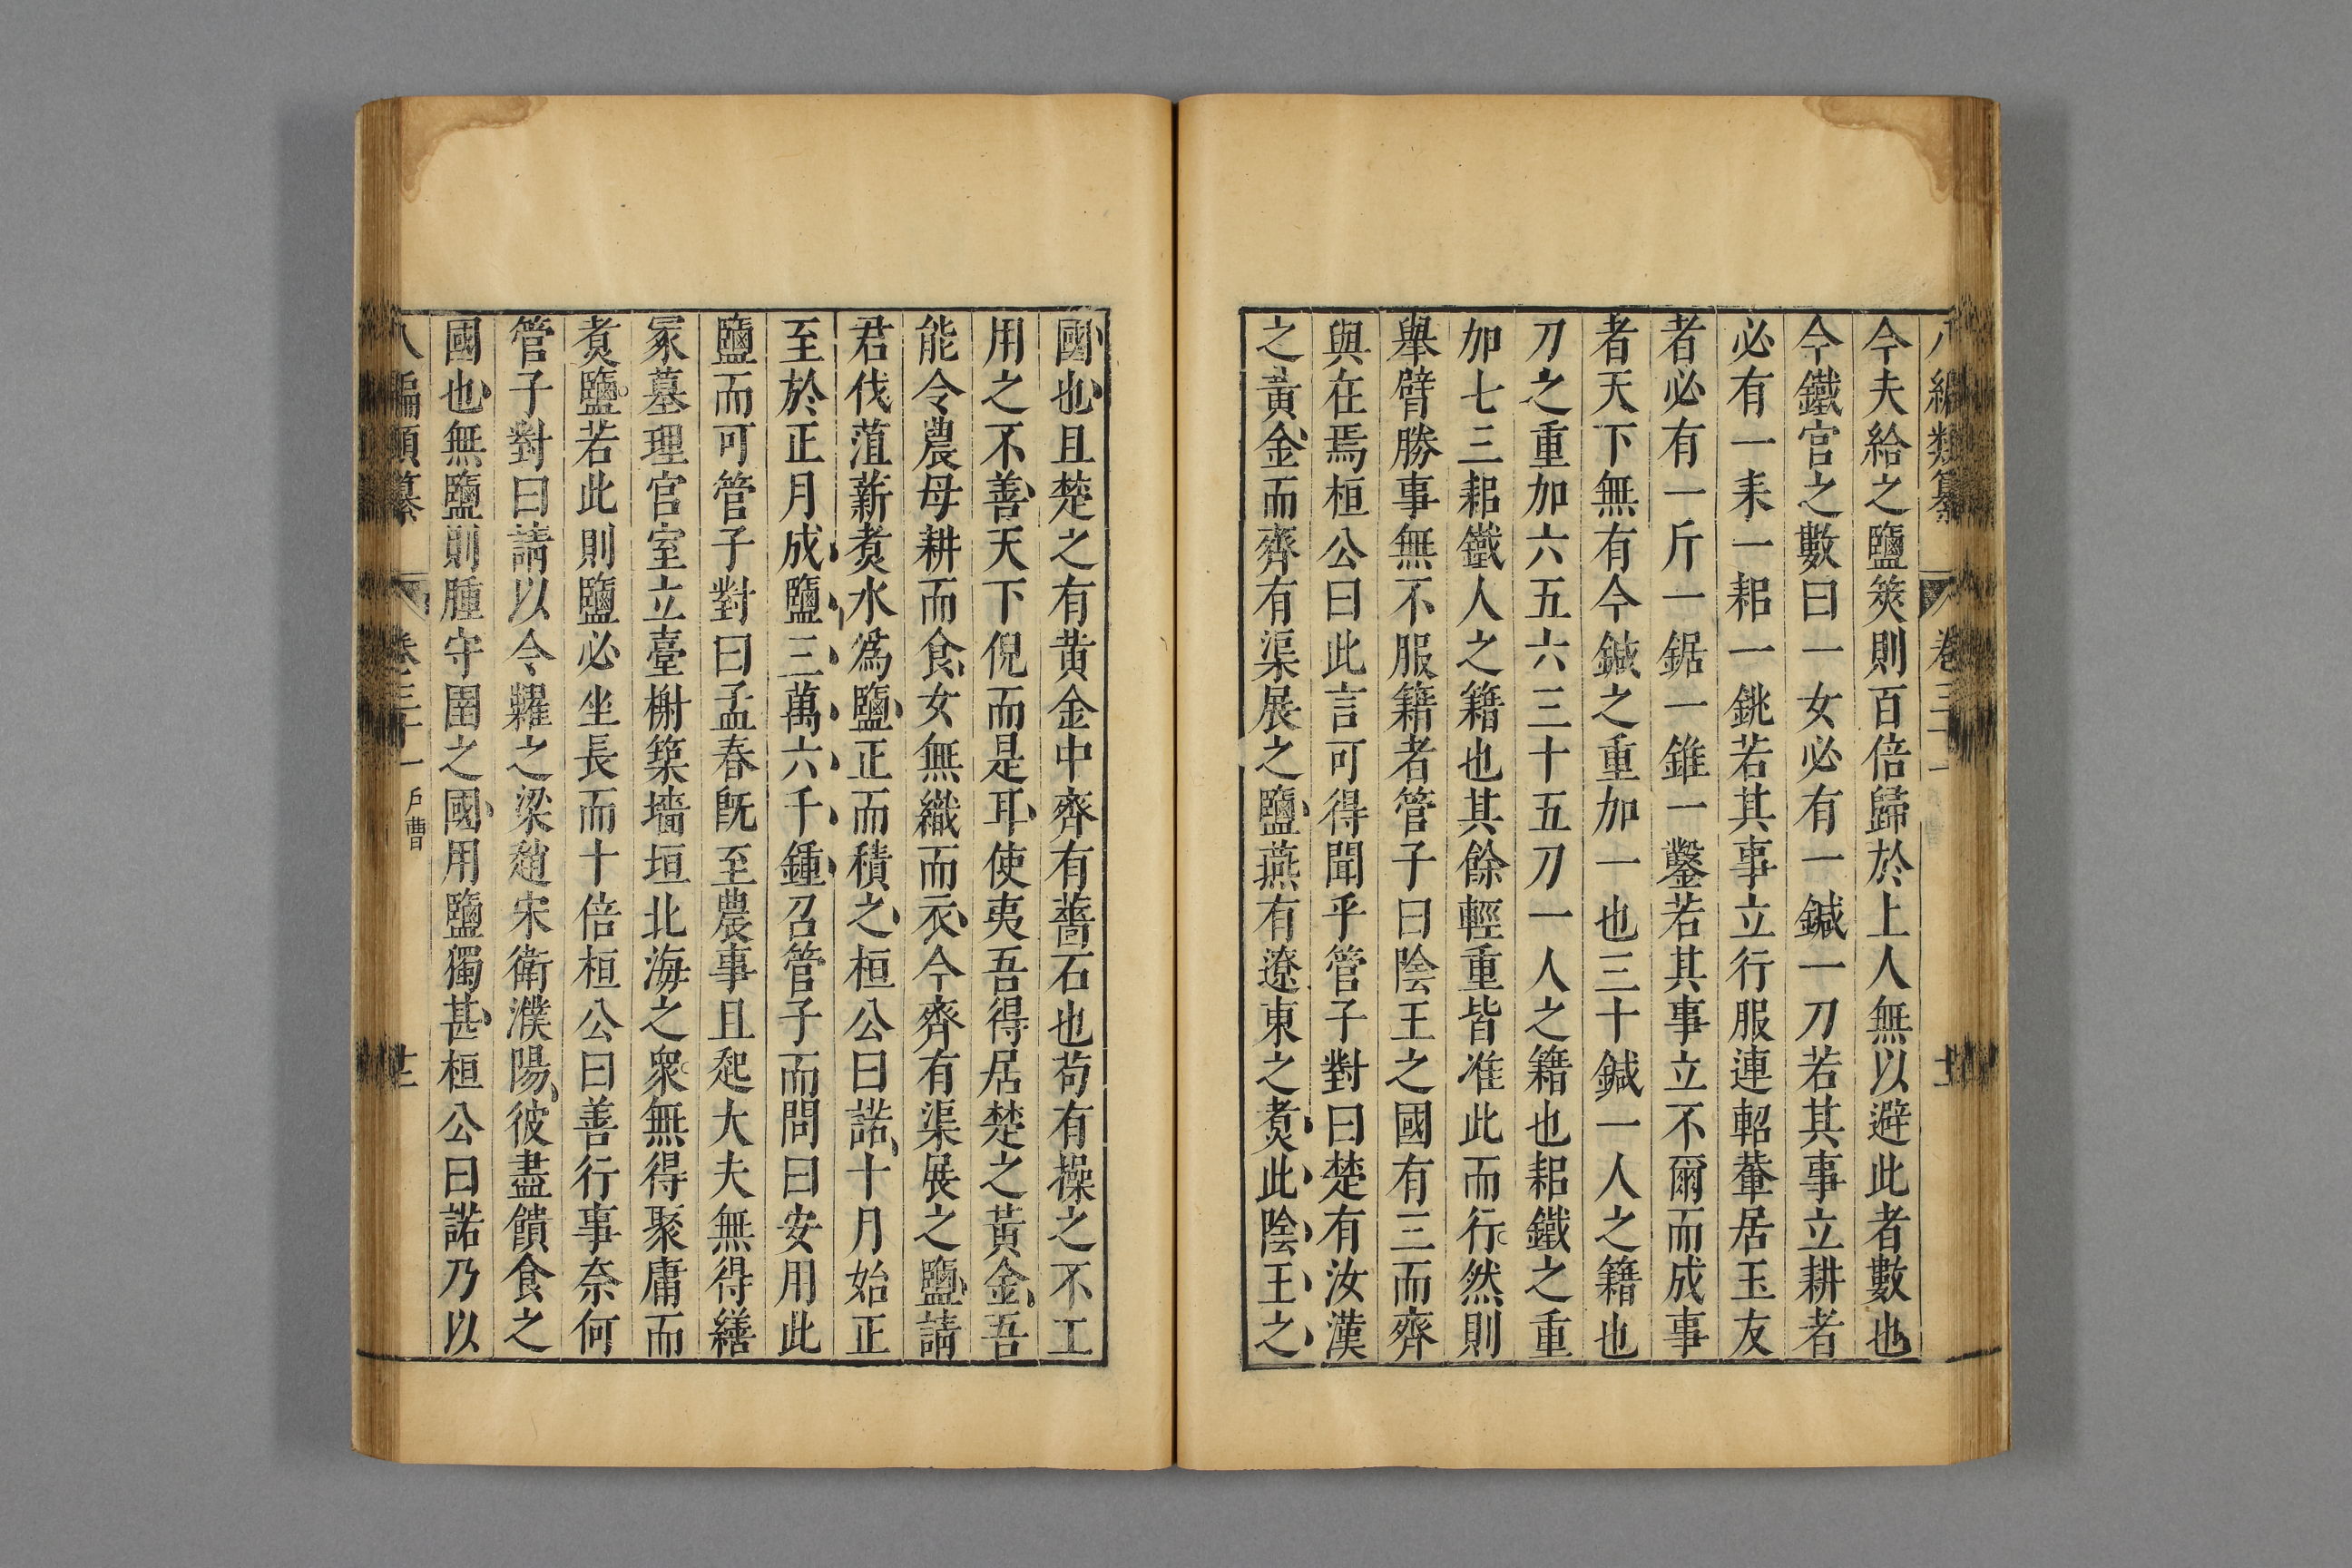 今夫給之鹽筴則百倍歸於上人無以避此者數也
今鐵官之數曰一女必有一鍼一刀若其事立耕者
必有一耒一耜一銚若其事立行服連軺輂居玉友
者必有一斤一鋸一錐一鑿若其事立不爾而成事
者天下無有今鍼之重加一也三十鍼一人之籍也
刀之重加六五六三十五刀一人之籍也耜鐵之重
加七三耜鐵人之籍也其餘輕重皆准此而行然則
舉臂勝事無不服籍者管子曰陰王之國有三而齊
與在焉桓公曰此言可得聞乎管子對曰楚有汝漢
之黃金而齊有渠展之鹽燕有遼東之煑此陰王之
國也且楚之有黃金中齊有薔石也苟有操之不工
用之不善天下倪而是耳使夷吾得居楚之黃金吾
能令農毋耕而食女無織而衣今齊有渠展之鹽請
君伐菹薪煑水爲鹽正而積之桓公曰諾十月始正
至於正月成鹽三萬六千鍾召管子而問曰安用此
鹽而可管子對曰孟春旣至農事且起大夫無得繕
冢墓理官室立臺榭築墻垣北海之衆無得聚庸而
煑鹽若此則鹽必坐長而十倍桓公曰善行事奈何
管子對曰請以令糶之梁趙宋衛濮陽彼盡饋食之
國也無鹽則腫守圉之國用鹽獨甚桓公曰諾乃以
八編類纂 卷三十一 戶曹